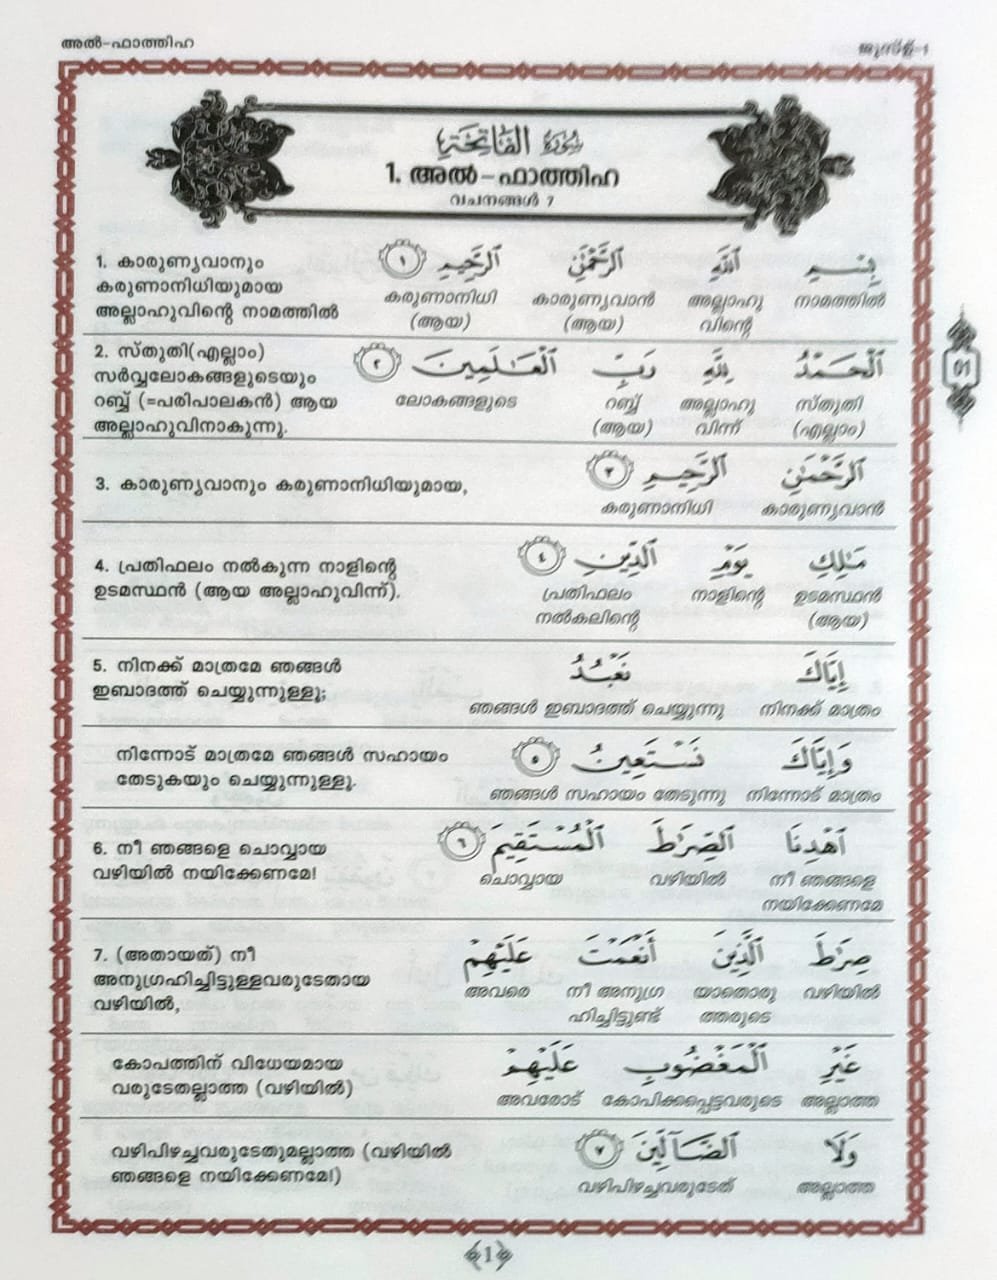 അൽ-ഫാത്തിഹ
ജുസ്ഉ്-1
سُورَةُ الْفَاتِحَةِ
1. അൽ-ഫാത്തിഹ
വചനങ്ങൾ 7
بِسْمِ اللَّهِ الرَّحْمَٰنِ الرَّحِيمِ ١
നാമത്തിൽ അല്ലാഹു കാരുണ്യവാൻ കരുണാനിധി
വിന്റെ (ആയ) (ആയ)
1. കാരുണ്യവാനും
കരുണാനിധിയുമായ
അല്ലാഹുവിന്റെ നാമത്തിൽ
الْحَمْدُ لِلَّهِ رَبِّ الْعَالَمِينَ ٢
സ്തുതി അല്ലാഹു റബ്ബ് ലോകങ്ങളുടെ
(എല്ലാം) വിന്ന് (ആയ)
2. സ്തുതി(എല്ലാം)
സർവ്വലോകങ്ങളുടെയും
റബ്ബ് (=പരിപാലകൻ) ആയ
അല്ലാഹുവിനാകുന്നു.
01
الرَّحْمَٰنِ الرَّحِيمِ ٣
കാരുണ്യവാൻ കരുണാനിധി
3. കാരുണ്യവാനും കരുണാനിധിയുമായ,
مَٰلِكِ يَوْمِ الدِّينِ ٤
ഉടമസ്ഥൻ നാളിന്റെ പ്രതിഫലം
(ആയ) നൽകലിന്റെ
4. പ്രതിഫലം നൽകുന്ന നാളിന്റെ
ഉടമസ്ഥൻ (ആയ അല്ലാഹുവിന്ന്).
إِيَّاكَ نَعْبُدُ
നിനക്ക് മാത്രം ഞങ്ങൾ ഇബാദത്ത് ചെയ്യുന്നു
5. നിനക്ക് മാത്രമേ ഞങ്ങൾ
ഇബാദത്ത് ചെയ്യുന്നുള്ളൂ;
وَإِيَّاكَ نَسْتَعِينُ ٥
നിന്നോട് മാത്രം ഞങ്ങൾ സഹായം തേടുന്നു
നിന്നോട് മാത്രമേ ഞങ്ങൾ സഹായം
തേടുകയും ചെയ്യുന്നുള്ളൂ.
اهْدِنَا الصِّرَٰطَ الْمُسْتَقِيمَ ٦
നീ ഞങ്ങളെ വഴിയിൽ ചൊവ്വായ
നയിക്കേണമേ
6. നീ ഞങ്ങളെ ചൊവ്വായ
വഴിയിൽ നയിക്കേണമേ!
صِرَٰطَ الَّذِينَ أَنْعَمْتَ عَلَيْهِمْ
വഴിയിൽ യാതൊരു നീ അനുഗ്ര അവരെ
ത്തരുടെ ഹിച്ചിട്ടുണ്ട്
7. (അതായത്) നീ
അനുഗ്രഹിച്ചിട്ടുള്ളവരുടേതായ
വഴിയിൽ,
غَيْرِ الْمَغْضُوبِ عَلَيْهِمْ
അല്ലാത്ത കോപിക്കപ്പെട്ടവരുടെ അവരോട്
കോപത്തിന് വിധേയമായ
വരുടേതല്ലാത്ത (വഴിയിൽ)
وَلَا الضَّالِّينَ ٧
അല്ലാത്ത വഴിപിഴച്ചവരുടേത്
വഴിപിഴച്ചവരുടേതുമല്ലാത്ത (വഴിയിൽ
ഞങ്ങളെ നയിക്കേണമേ!)
1